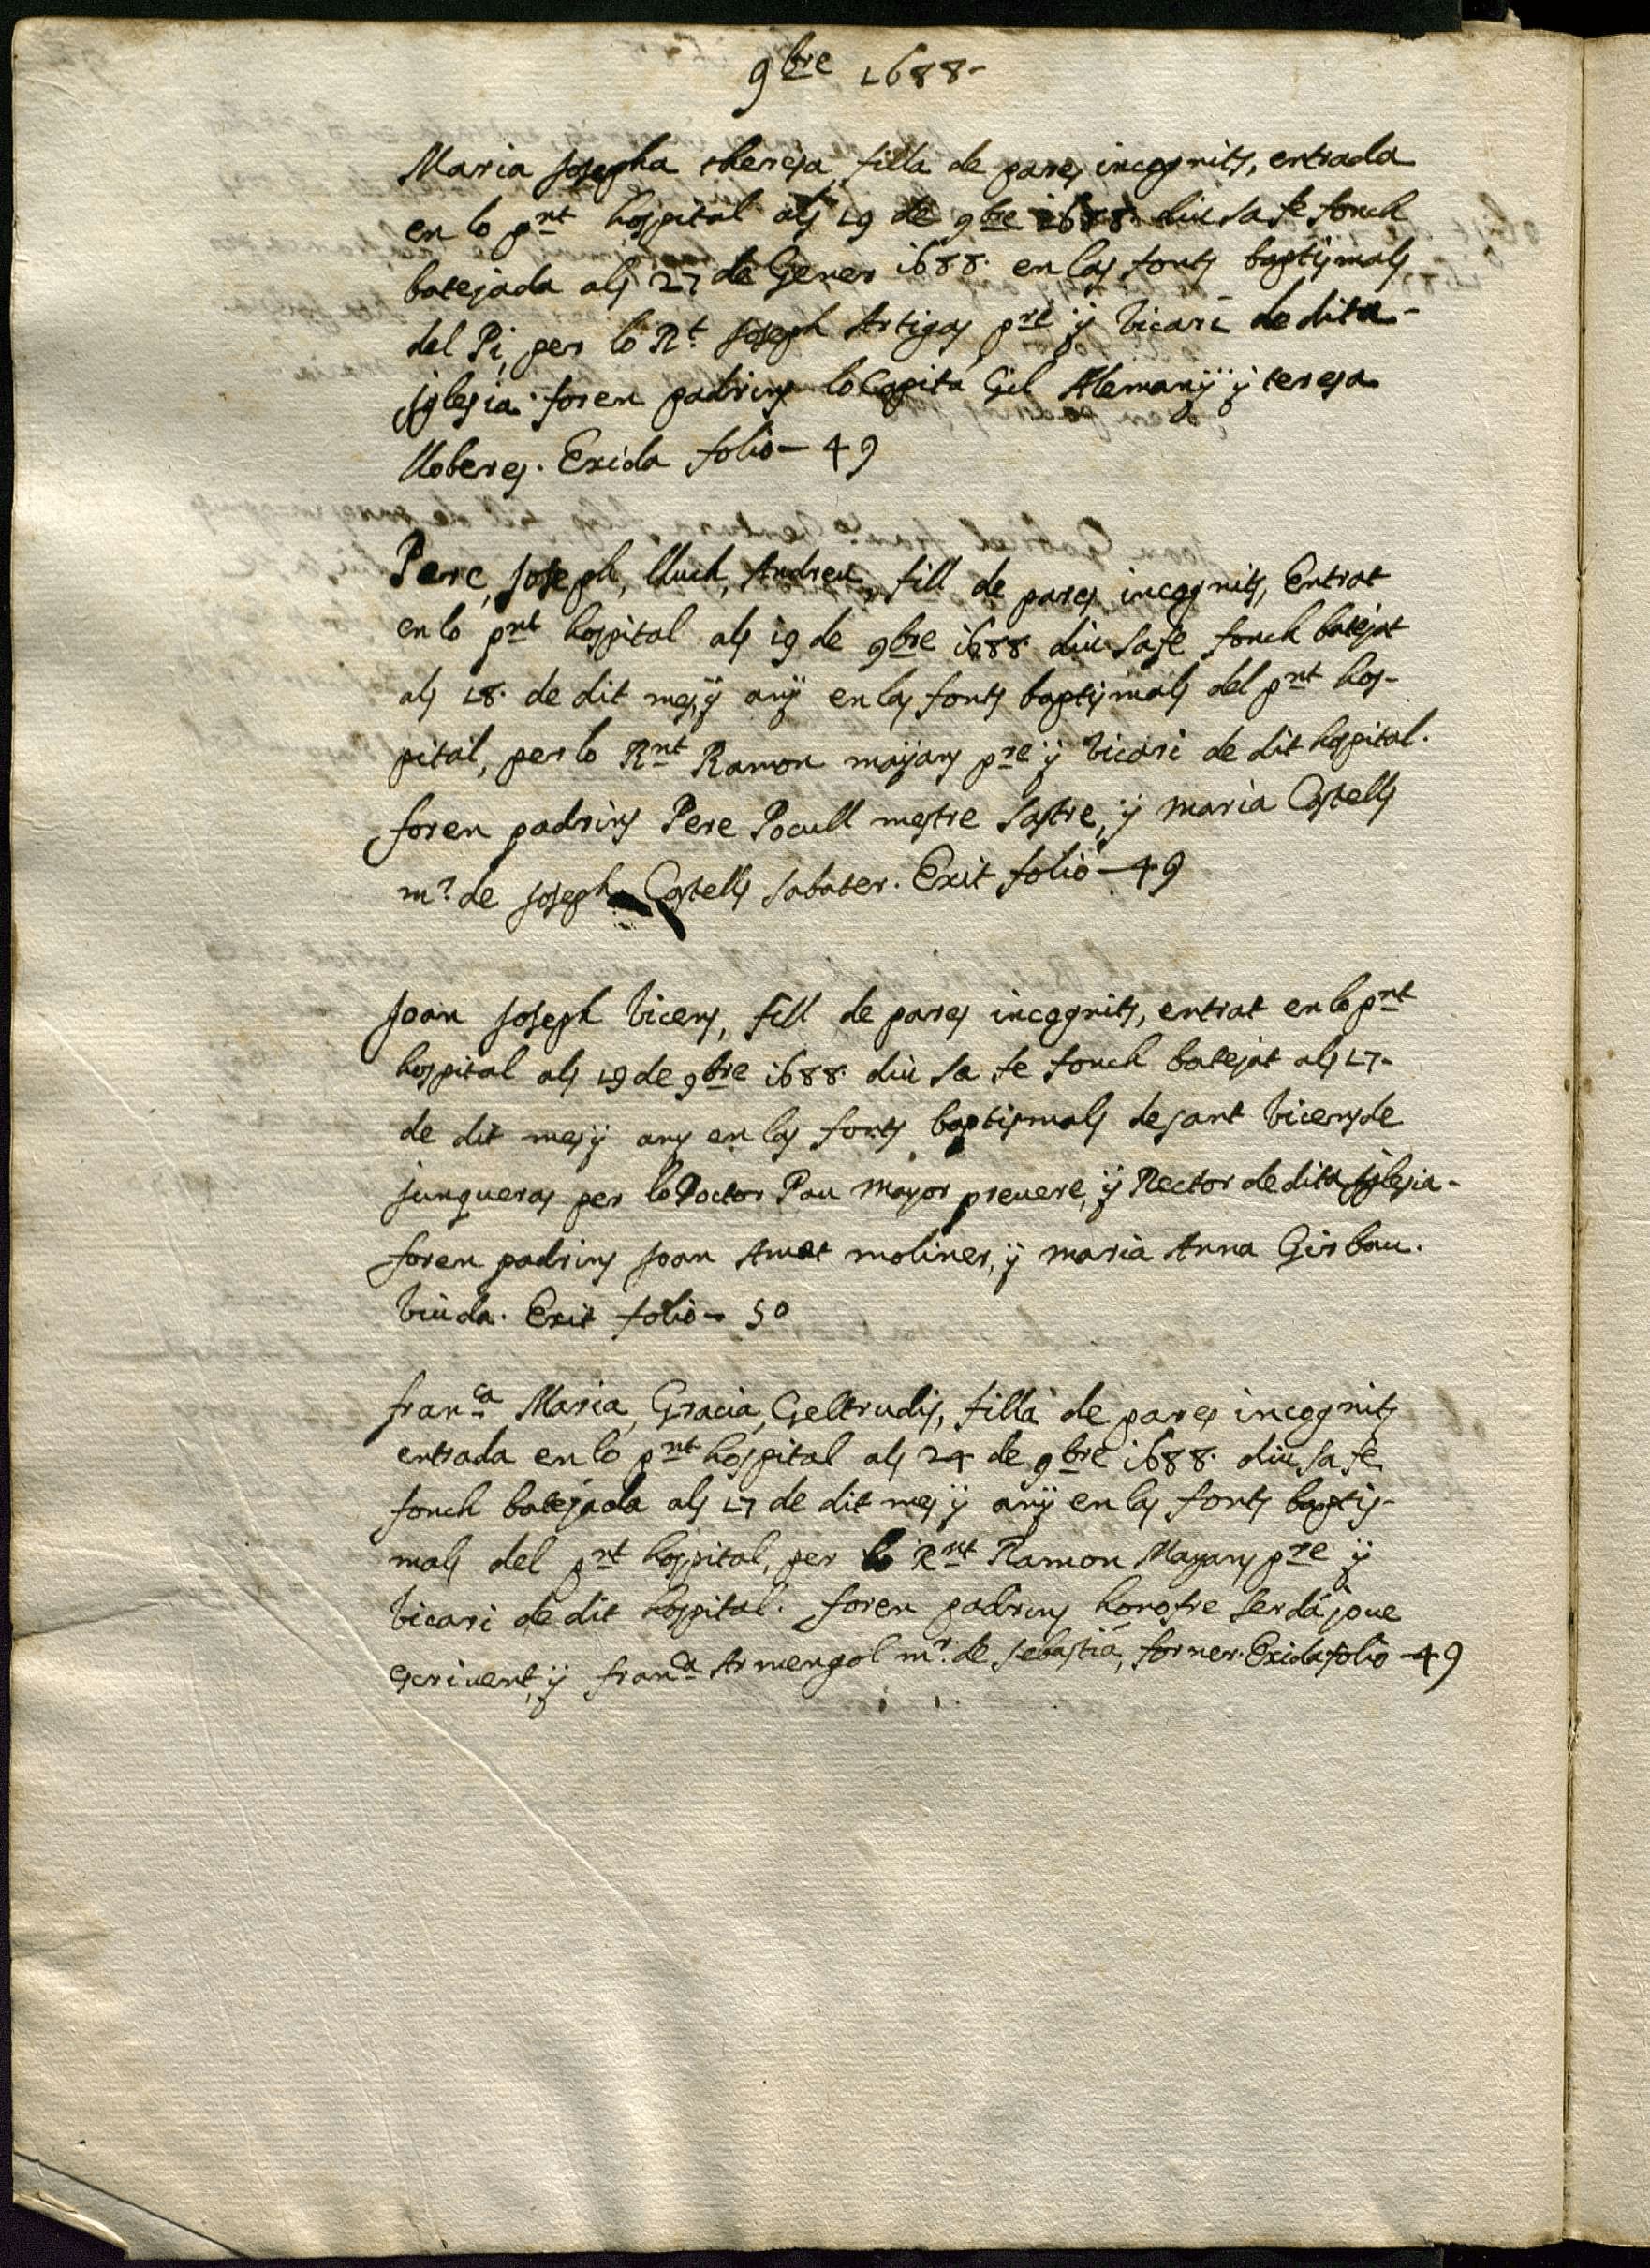 9bre 1688-
Maria Josepha thereja, filla de pares incognits, entrada
en lo pnt hospital als 19 de 9bre 1688. diu sa fe fonch
batejada als 27 de Gener 1688. en las fonts baptismals
del Pi, per lo Rt. Joseph Artigas pre ÿ vicari de dita-
jglesia. foren padrins lo Capita Gil Alemanÿ ÿ teresa
lloberes. Exida folio- 49
Pere, Joseph, lluch, Andreu, fill de pares incognits, Entrat
en lo pnt hospital als 19 de 9bre 1688. diu sa fe fonch batejat
als 18. de dit mes ÿ anÿ en las fonts baptismals del pnt hos-
pital, per lo Rnt Ramon maÿans pre ÿ vicari de dit hospital.
foren padrins Pere Pocull mestre sastre, ÿ maria Castells
mr. de Joseph Castells sabater. Exit folio- 49
Joan Joseph Vicens, fill de pares incognits, entrat en lo pnt
hospital als 19 de 9bre 1688. diu sa fe fonch batejat als 17-
de dit mes ÿ anÿ en las fonts baptismals de sant Vicens de
junqueras per lo Doctor Pau Mayor prevere, ÿ Rector de dita jglesia-
foren padrins Joan Amat moliner, ÿ maria Anna Girbau.
viuda. Exit folio- 50
franca Maria, Gracia, Geltrudis, filla de pares incognits
entrada en lo pnt hospital als 24 de 9bre 1688. diu sa fe
fonch batejada als 17 de dit mes ÿ anÿ en las fonts baptis-
mals del pnt hospital, per lo Rnt Ramon Mayans pre ÿ
vicari de dit hospital. foren padrins honofre serdá jove
escrivent, ÿ franca Armengol mr. de sebastiá, forner. Exida folio-49